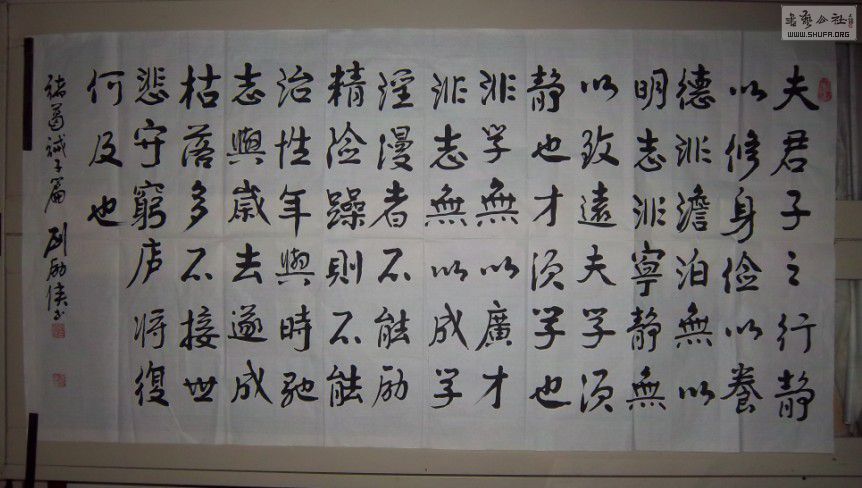 夫君子之行静
以修身俭以養
德非澹泊無以
明志非寧静無
以致遠夫学须
静也才须学也
非学無以廣才
非志無以成学
淫漫者不能励
精险躁則不能
治性年與時馳
志與歲去遂成
枯落多不接世
悲守窮庐将復
何及也
诸葛诫子篇 刘励侠书
書藝公社
WWW.SHUFA.ORG